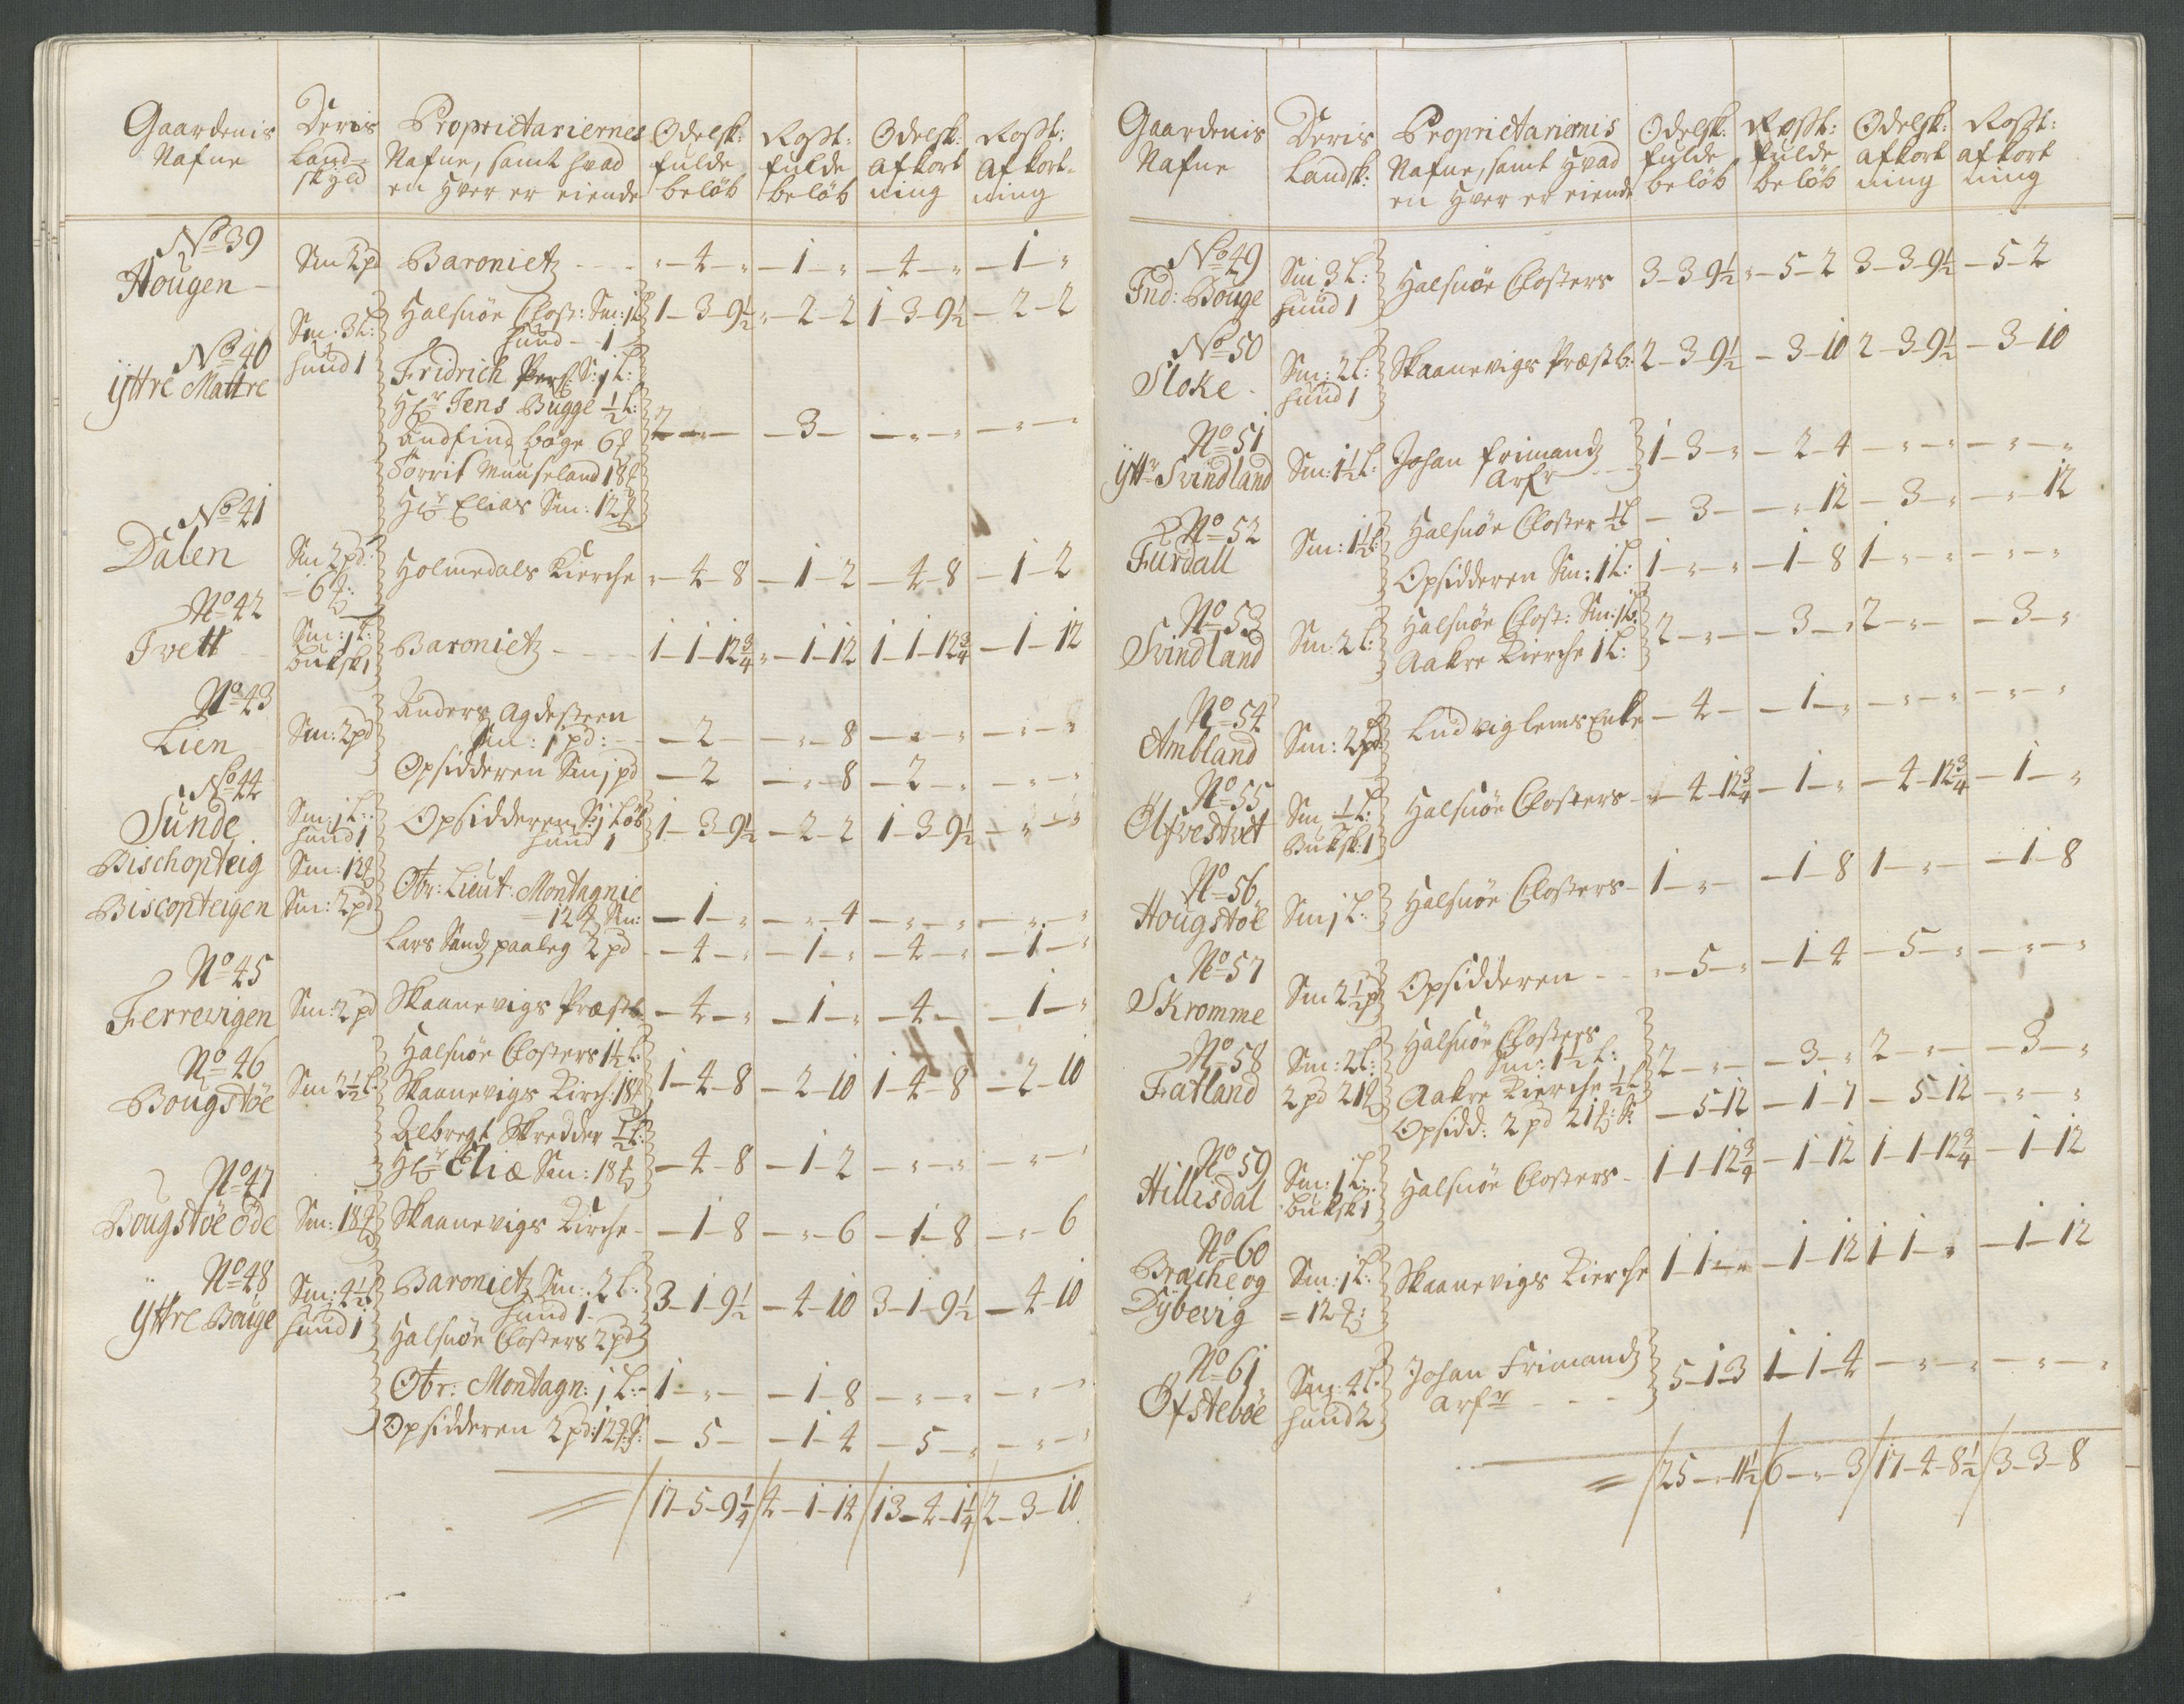 Gaardenis Nafne | Deris Land= skyld | Proprietariernes Nafne, samt hvad en hver er eiende | Odelsk: fulde beløb | Rosst: fulde beløb | Odelsk: afkort ning | Rosst: afkort= ning
No 39
Hougen | Sm 2 pd | Baronietz | " - 4 - " | - 1 - " | - 4 - " | - 1 - "
No 40
Ÿttre Mattre | Sm: 3 L: hund 1 | Halsnöe Clost: Sm: 1 L hund - 1 | 1 - 3 - 9½ | " - 2 - 2 | 1 - 3 - 9½ | - 2 - 2
Fridrich Pers: S: 1 L:
Hr Jens Bugge ½ L:
Andfind böge 6 | 2 - " - | - 3 - | - " - " | - " - "
Torris Munseland 18
Hr Elias Sm: 12
No 41
Dalen | Sm 2 pd: = 6 | Holmedals Kierche | " - 4 - 8 | - 1 - 2 | - 4 - 8 | - 1 - 2
No 42
Tvett | Sm: 1 L: buksk 1 | Baronietz | 1 - 1 - 12¾ | " - 1 - 12 | 1 - 1 - 12¾ | - 1 - 12
No 43
Lien | Sm: 2 pd | Anders Agdesteen Sm: 1 pd: | - 2 | - " - 8 | - " - " | - " - "
Opsidderen Sm 1 pd | - 2 | - " - 8 | - 2 - " | - " - "
No 44
Sunde | Sm: 1 L: hund 1 | Opsidderen S: 1 Löb hund 1 | 1 - 3 - 9½ | - 2 - 2 | 1 - 3 - 9½ | - " - "
Bischopteig | Sm: 12 | Obr: Lieut: Montagnie = 12 Sm: | - 1 - " | - " - 4 | - " - " | - " - "
Biscopteigen | Sm: 2 pd | Lars Sundz paaleg 2 pd | - 4 - " | - 1 - " | - 4 - " | - 1 - "
No 45
Ferrevigen | Sm: 2 pd | Skaanevigs Præstb | - 4 - " | - 1 - " | - 4 - | - 1 - "
No 46
Bougstöe | Sm 2½ L | Halsnöe Closters 1½ L:
Skaanevigs Kirch: 18 | 1 - 4 - 8 | - 2 - 10 | 1 - 4 - 8 | - 2 - 10
Albregt Skredder ½ L:
Hr Eliæ Sm: 18 | - 4 - 8 | - 1 - 2 | - " - " | - " - "
No 47
Bougstöe öde | Sm: 18 | Skaanevigs Kirche | - 1 - 8 | - " - 6 | - 1 - 8 | - " - 6
No 48
Ÿttre Bouge | Sm: 4½ L hund 1 | Baronietz Sm: 2 L: hund 1 | 3 - 1 - 9½ | - 4 - 10 | 3 - 1 - 9½ | - 4 - 10
Halsnöe Closters 2 pd
Obr: Montagn: 1 L: | 1 - " - | - 1 - 8 | - " - " | - " - "
Opsidderen 2 pd: 12 S: | - 5 - | - 1 - 4 | - 5 - " | - " - "
= / 17 - 5 - 9¼ / 4 - 1 - 14 / 13 - 4 - 1¼ / 2 - 3 - 10
Gaardenis Nafne | Deris Landsk: | Proprietariernis Nafne, samt hvad en hver er eiende | Odelsk: fulde beløb | Rosst: fulde beløb | Odelsk: afkort ning | Rosst: afkort ning
No 49
Ind: Bouge | Sm: 3 L: hund 1 | Halsnöe Closters | 3 - 3 - 9½ | " - 5 - 2 | 3 - 3 - 9½ | - 5 - 2
No 50
Stoke | Sm: 2 L: hund 1 | Skaanevigs Præstb: | 2 - 3 - 9½ | - 3 - 10 | 2 - 3 - 9½ | - 3 - 10
No 51
Ÿttr Svindland | Sm: 1½ L: | Johan frimandz Arfr | 1 - 3 - " | - 2 - 4 | - " - " | - " - "
No 52
Furdall | Sm: 1½ L: | Halsnöe Closter ½ L | - 3 - | - " - 12 | - 3 - " | - " - 12
Opsidderen Sm: 1 L: | 1 - " - " | - 1 - 8 | 1 - " - " | - " - "
No 53
Svindland | Sm: 2 L: | Halsnöe Clost: Sm: 1 L: Aakre Kierche 1 L: | 2 - " - | - 3 - " | 2 - " - | - 3 - "
No 54
Ambland | Sm: 2 pd | Ludvig lems Enke | - 4 - | - 1 - " | - " - " | - " - "
No 55
Ølfvestvet | Sm ½ L: Buksk: 1 | Halsnöe Closters | " - 4 - 12¾ | - 1 - " | - 4 - 12¾ | - 1 - "
No 56
Hougstöe | Sm 1 L: | Halsnöe Closters | 1 - " - | - 1 - 8 | 1 - " - | - 1 - 8
No 57
Skromme | Sm 2½ pd | Opsidderen | " - 5 - " | - 1 - 4 | - 5 - " | - " - "
No 58
Fatland | Sm: 2 L: 2 pd 21 | Halsnöe Closters Sm: 1½ L: | 2 - " - | - 3 - " | 2 - " - | - 3 - "
Aakre Kierche ½ L
Opsidd: 2 pd 21 S: | - 5 - 12 | - 1 - 7 | - 5 - 12 | - " - "
No 59
Hillisdal | Sm: 1 L: buksk 1 | Halsnöe Closters | 1 - 1 - 12¾ | - 1 - 12 | 1 - 1 - 12¾ | - 1 - 12
No 60
Brache og Dÿbevig | Sm: 1 L: = 12 | Skaanevigs Kierche | 1 - 1 - " | - 1 - 12 | 1 - 1 - " | - 1 - 12
No 61
Øfsteböe | Sm: 4 L: hund 2 | Johan Frimandz Arfr | 5 - 1 - 3 | 1 - 1 - 4 | - " - " | - " - "
= / 25 - " - 11½ / 6 - " - 3 / 17 - 4 - 8½ / 3 - 3 - 8